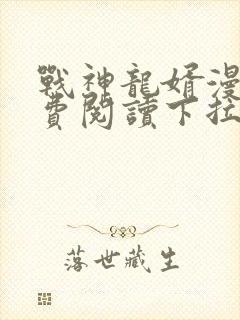 戰神龍婿漫
費閱讀下拉
落世藏生